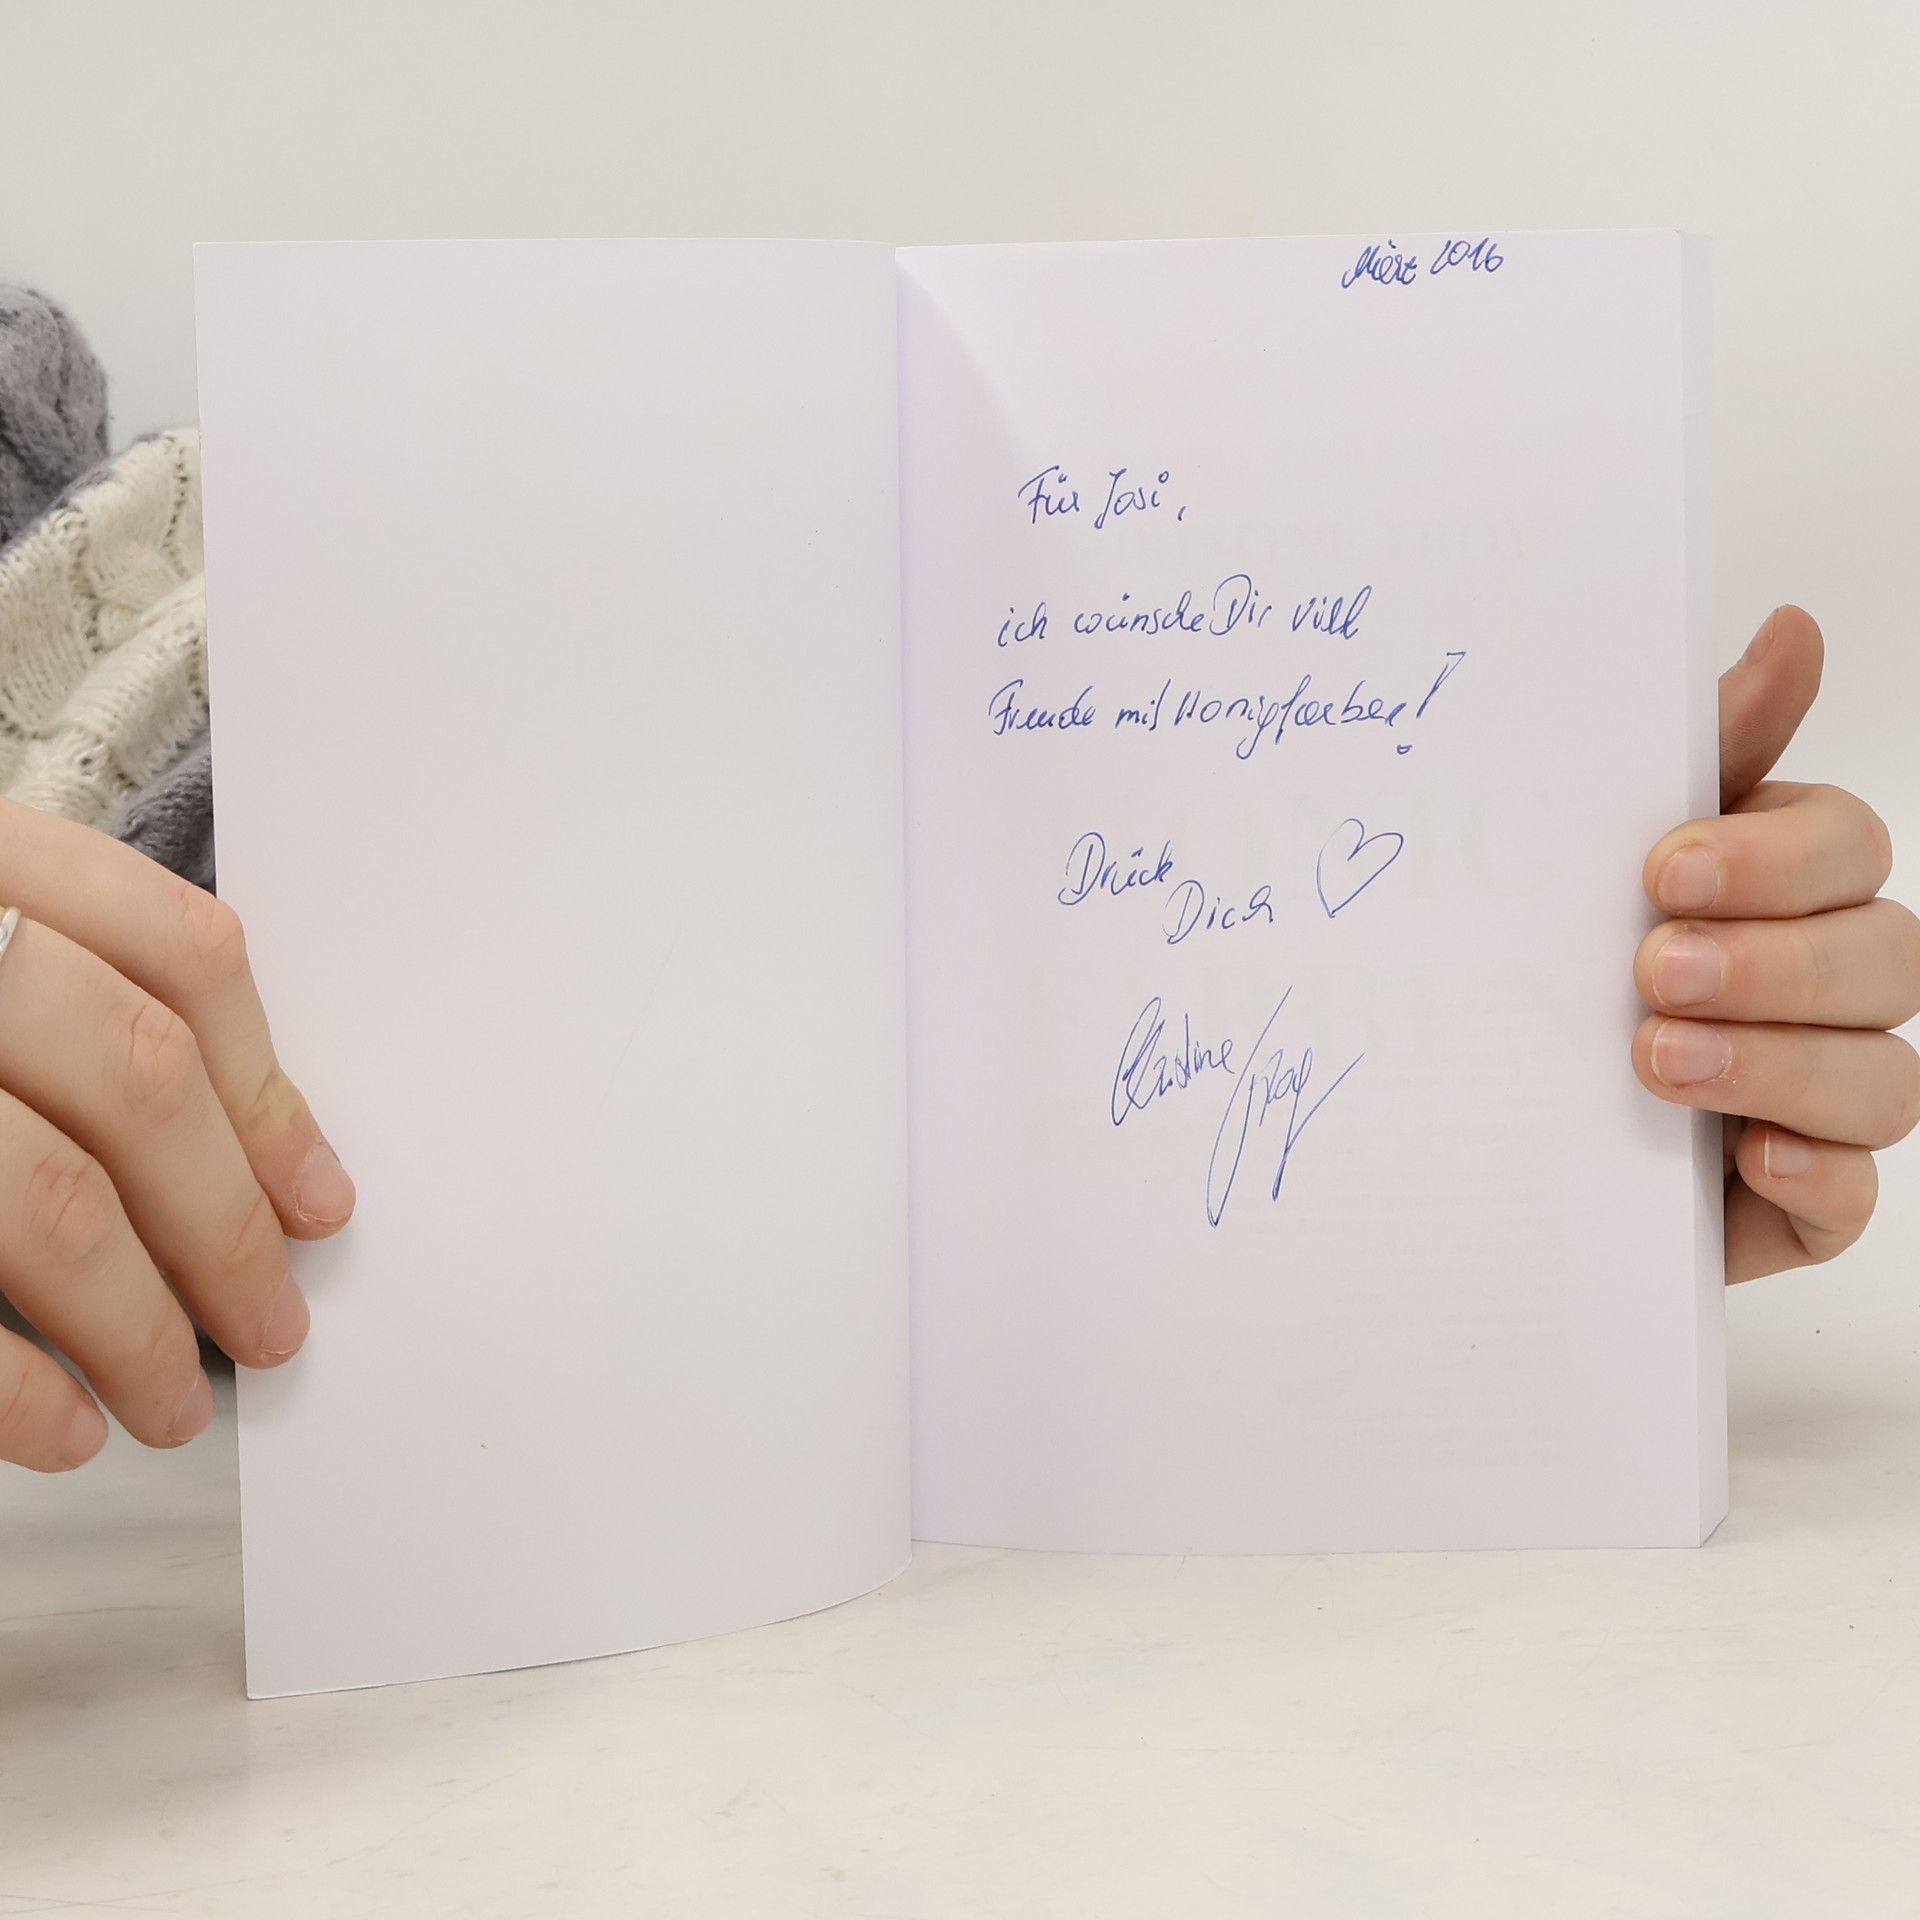 März 2016
Für Josi,
ich wünsche Dir viel
Freude mit Honigfarben!
Drück
Dich
Christine